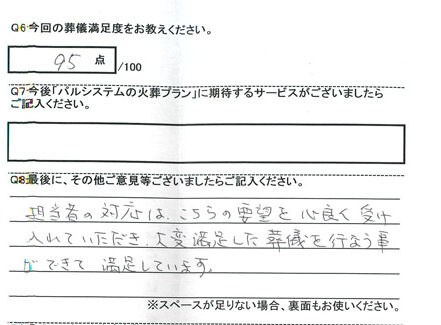 Q6 今回の葬儀満足度をお教えください。
95 点 /100
Q7 今後「パルシステムの火葬プラン」に期待するサービスがございましたら
ご記入ください。
Q8 最後に、その他ご意見等ございましたらご記入ください。
担当者の対応は、こちらの要望を心良く受け
入れていただき、大変満足した葬儀を行なう事
ができて満足しています。
※スペースが足りない場合、裏面もお使いください。